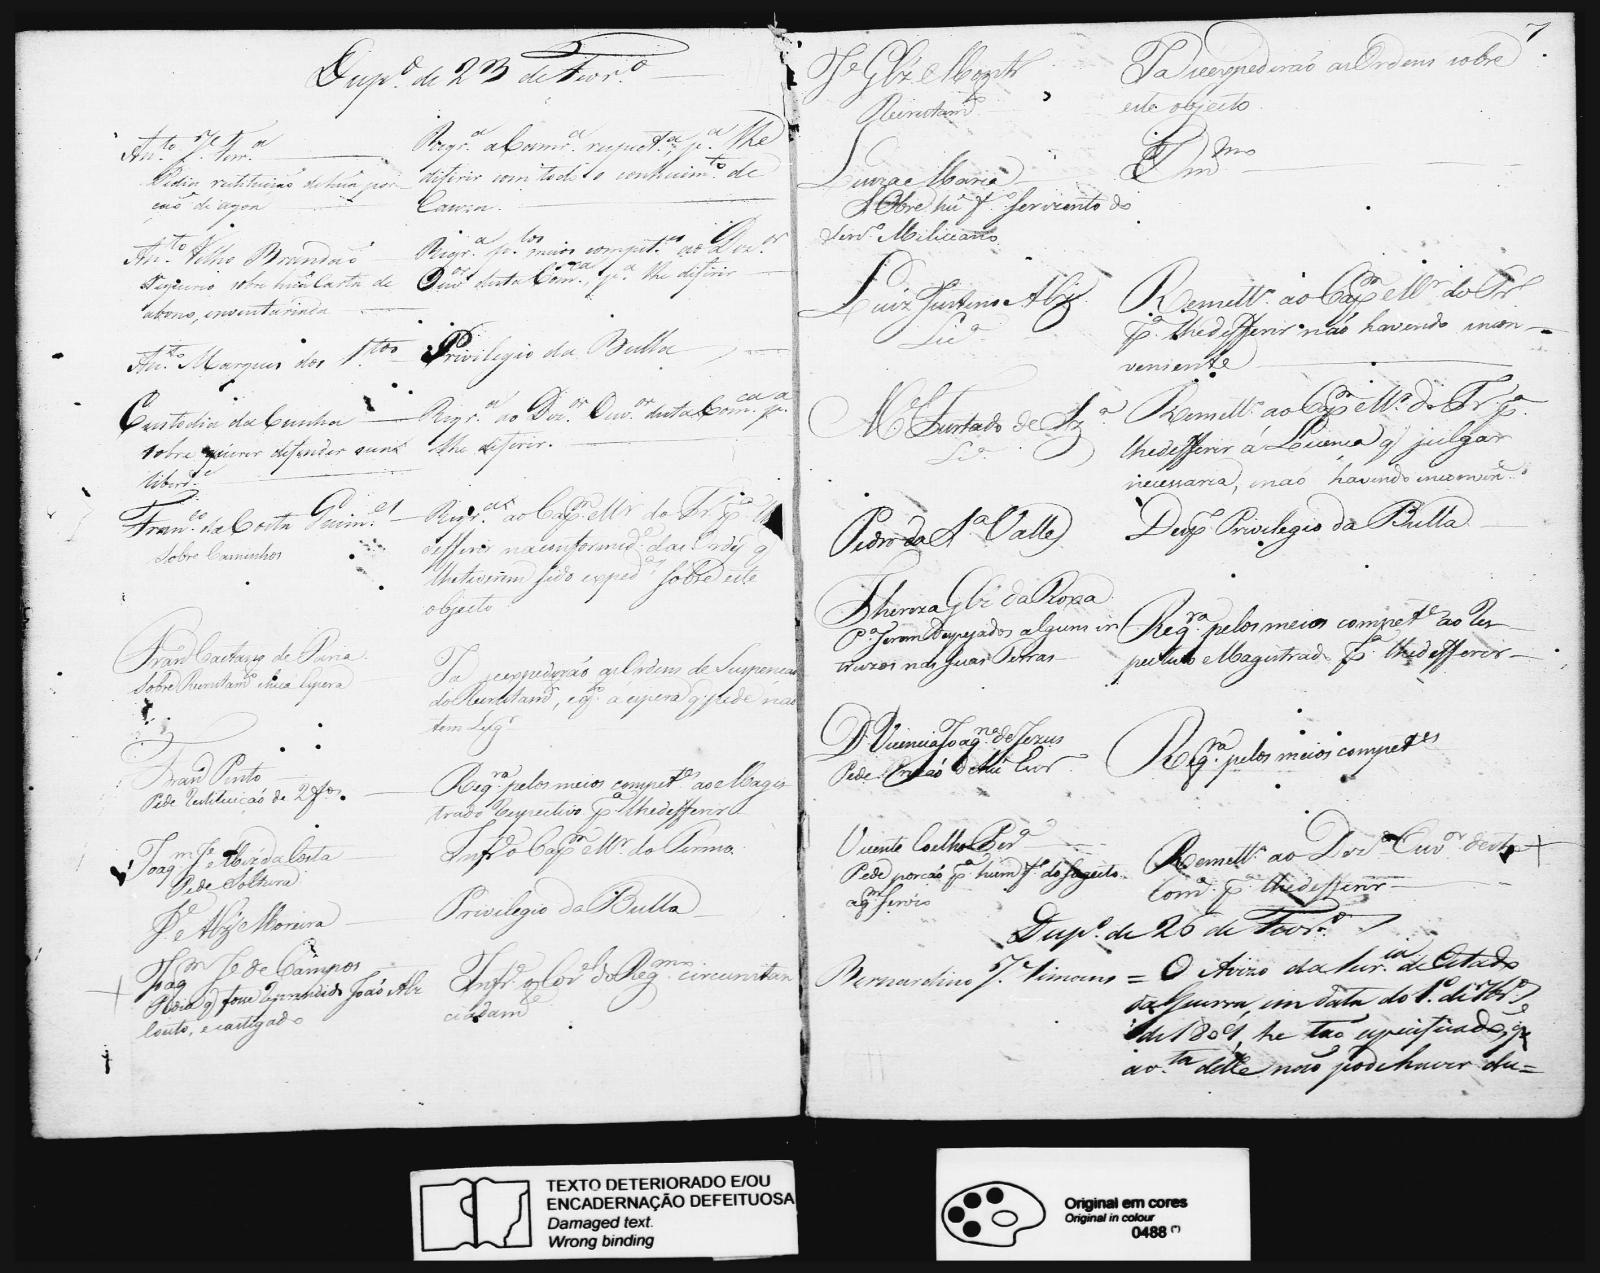 Desp.º de 23 de Fevr.º
Ant.º Je Ferr.ª
Pedia restituição de hũa por-
ção de agoa
Reqr.ª a Camr.ª respect.ª, p.ª lhe
diferir com todo o conhecim.to de
Cauza.
Ant.º Velho Brandão
Requereo sobre hũa Carta de
abono, inventariada
Reqr.ª p.los meios compet.es ao Dor.
Ouv.or desta Com.ca, p.ª lhe diferir
Ant.º Marques dos S.tos
Privilegio da Bulla
Custodia da Cunha
sobre querer defender sua
liberd.e
Reqr.ª ao Dor. Ouv.or desta Com.ca p.ª
lhe diferir.
Fran.co da Costa Guim.es
Sobre Caminhos
Reqr.ª ao Cap.m Mr. do Tr. p.ª lhe
defferir na conformid.e das Ordẽs q
lhe tiverem sido exped.as sobre este
objecto
Fran.co Caetano de Faria
Sobre Recrutam.to e hũa Espera
Ja se expedirão as Ordens de Suspenção
do Recrutam.to, e q.to a espera q pede não
tem Lug.r
Fran.co Pinto
Pede restituição de 2 f.os
Reqr.ª pelos meios compet.es ao Magis
trado respectivo p.ª lhe defferir
Joaq.m Je Miz da Costa
Pede Soltura
Infr.e o Cap.m Mr. do Termo.
Je Alz Moreira
Privilegio da Bulla
Joaq.m Je de Campos
Pedia q fosse reprendido João Alz
Couto, e castigado
Infr.e o Cor.el do Regm.to circunstan
ciadam.e
7
Je Glz Mont.ro
Recrutam.to
Ja se expedirão as Ordens sobre
este objecto
Luiza e Maria
Sobre hũ f.o Servindo do
Serv.o Miliciano
O m.mo
Luiz Justino Alz
Lic.ª
Remett.º ao Cap.m Mr do Tr.º
p.ª lhe defferir não havendo incon-
veniente
M.el Furtado de Az.º
Lic.ª
Remett.º ao Cap.m Mr. do Tr. p.ª
lhe defferir á Licença q julgar
necessaria, não havendo inconven.e
Pedro da S.ª Valle
Desp.º Privilegio da Bulla
Thereza Glz da Roza
P.ª serem despejados alguns in
truzos nas suas Terras
Reqr.ª pelos meios compet.es ao res-
pectivo Magistrado p.ª lhe defferir
D. Vicencia Joaq.na de Jezus
Pede Prizão de hũ Cred.or
Reqr.ª pelos meios compet.es
Vicente Coelho
Pede porção p.ª hum f.º do Sugeito
a q.m servio
Remett.º ao Dor. Ouv.or desta
Com.ca p.ª lhe defferir
Desp.º de 26 de Fevr.º
Bernardino J. Simoens = O Avizo da Secr.ia de Estado
da Guerra, em data do 1.º de
de 1809, he tão especificado, q
avista delle não pode haver du=
TEXTO DETERIORADO E/OU
ENCADERNAÇÃO DEFEITUOSA
Damaged text.
Wrong binding
Original em cores
Original in colour
0488 (*)